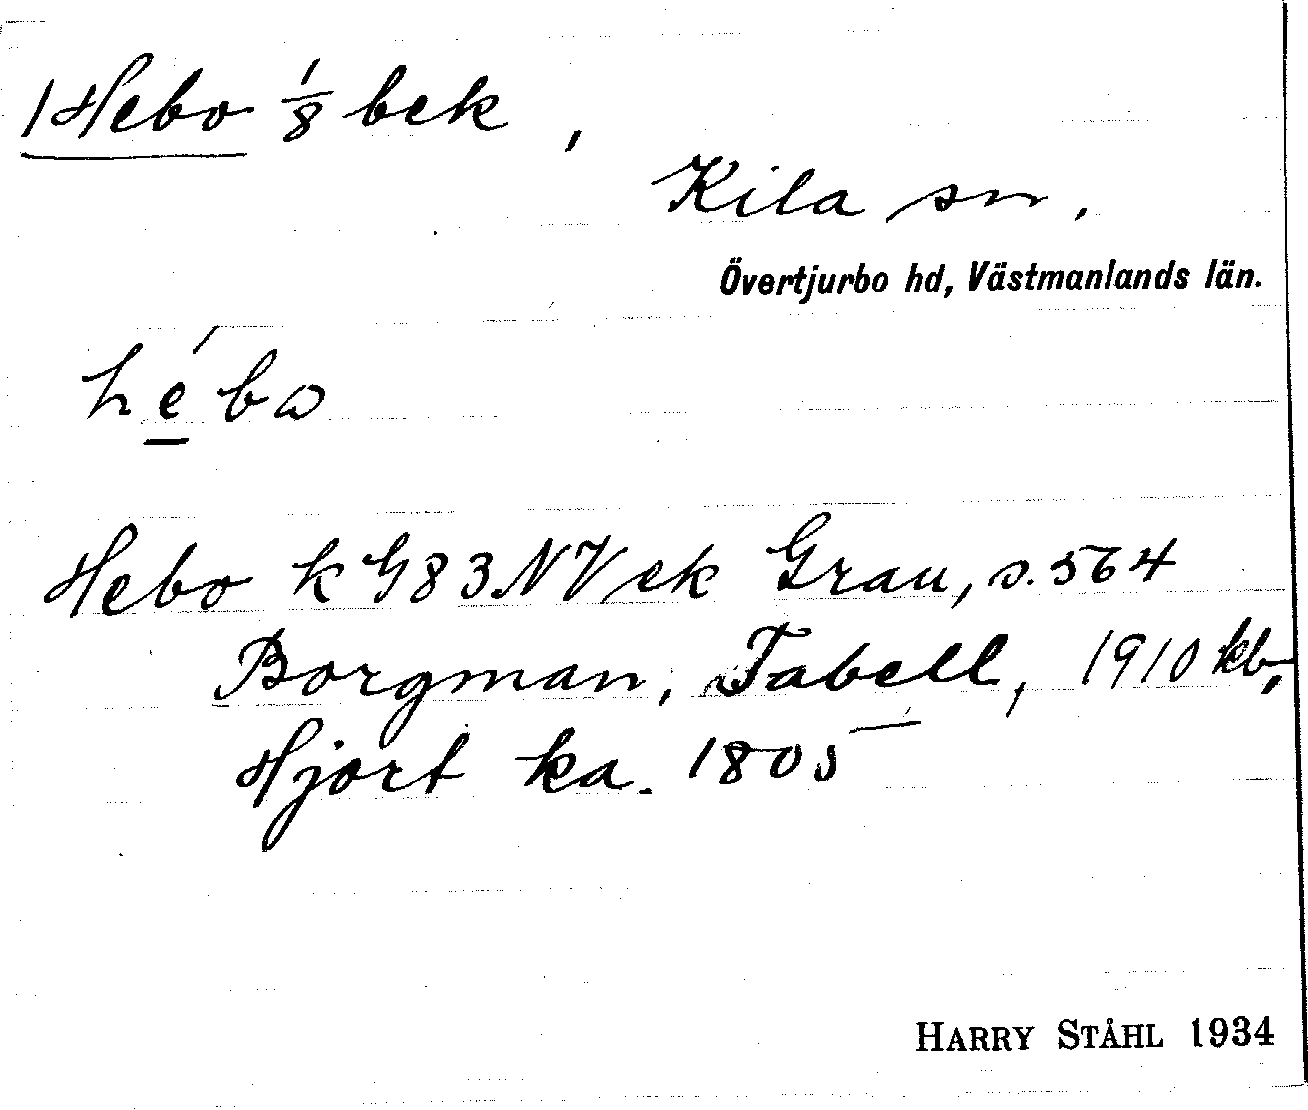 1 Hebo 1/8 bek,
Kila sn,
Övertjurbo hd, Västmanlands län.
hébω
Hebo k G83NV ek Grau, s. 564
Borgman, Tabell, 1910 kb,
Hjort ka. 1805
HARRY STÅHL 1934